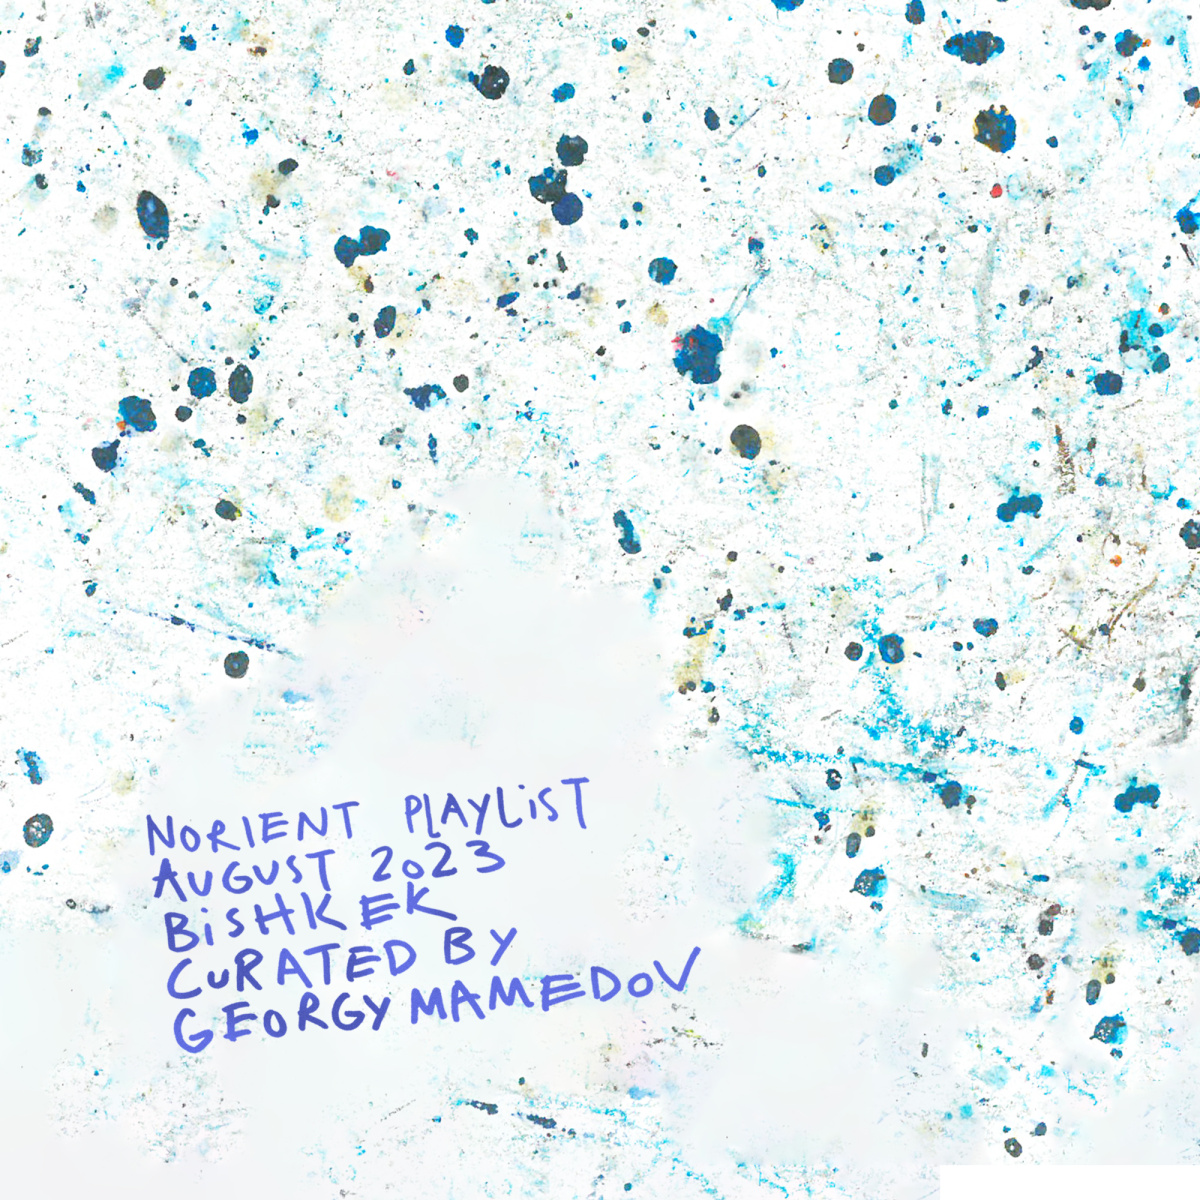 NORIENT PLAYLiST
AUGUST 2023
BiSHKEK
CuRATED BY
GEORGY MAMEDOV